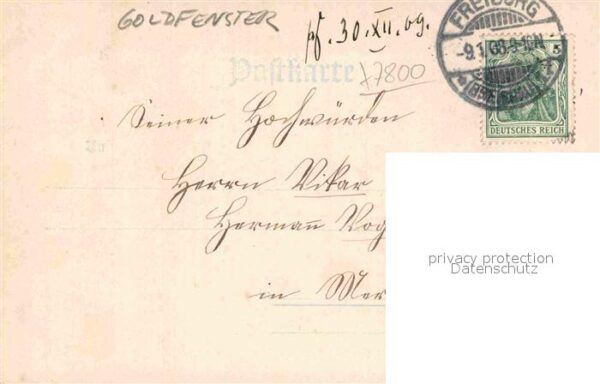 GOLDFENSTER
pf. 30.XII.09.
Postkarte
7800
FREIBURG
-9.1.08.9-10N
(BREISGAU)
DEUTSCHES REICH
5
An
Seiner Hochwürden
Herrn Vikar
Hermann Vog
in Mer
privacy protection
Datenschutz